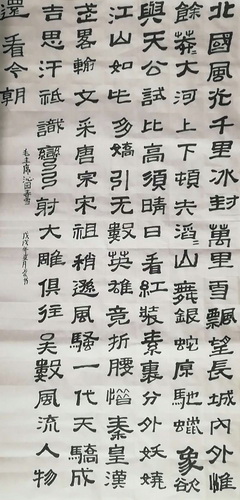 北國風光千里冰封萬里雪飄望長城內外惟
餘莽大河上下頓失滔〻山舞銀蛇原馳蠟象欲
與天公試比高須晴日看紅裝素裹分外妖嬈
江山如此多嬌引无數英雄竞折腰惜秦皇漢
武畧輸文采唐宗宋祖稍遜風騷一代天驕成
吉思汗祗識彎弓射大雕俱往矣數風流人物
還看今朝
毛主席沁园春雪